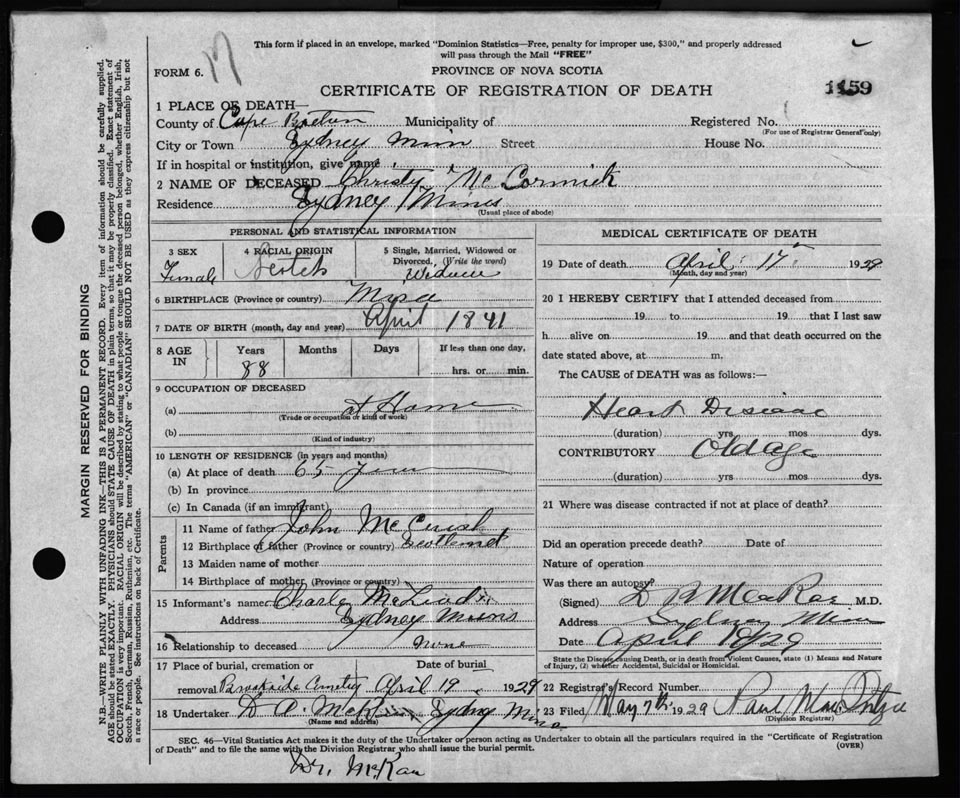 This form if placed in an envelope, marked "Dominion Statistics—Free, penalty for improper use, $300," and properly addressed
will pass through the Mail "FREE"
FORM 6.
PROVINCE OF NOVA SCOTIA
CERTIFICATE OF REGISTRATION OF DEATH
1159
1 PLACE OF DEATH—
County of Cape Breton Municipality of Registered No.
(For use of Registrar General only)
City or Town Sydney Mines Street House No.
If in hospital or institution, give name
2 NAME OF DECEASED Christy McCormick
Residence Sydney Mines
(Usual place of abode)
PERSONAL AND STATISTICAL INFORMATION
3 SEX
Female
4 RACIAL ORIGIN
Scotch
5 Single, Married, Widowed or
Divorced, (Write the word)
Widow
6 BIRTHPLACE (Province or country) Mira
7 DATE OF BIRTH (month, day and year) April 1841
8 AGE
IN
Years
88
Months
Days
If less than one day,
hrs. or min.
9 OCCUPATION OF DECEASED
(a) at Home
(Trade or occupation or kind of work)
(b)
(Kind of industry)
10 LENGTH OF RESIDENCE (in years and months)
(a) At place of death 65 years
(b) In province
(c) In Canada (if an immigrant)
Parents
11 Name of father John
12 Birthplace of father (Province or country) Scotland
13 Maiden name of mother
14 Birthplace of mother (Province or country)
15 Informant's name Charles McLeod
Address Sydney Mines
16 Relationship to deceased none
17 Place of burial, cremation or Date of burial
removal Brookside Cemetery April 19 1929
18 Undertaker D. A. Sydney Mines
(Name and address)
MEDICAL CERTIFICATE OF DEATH
19 Date of death April 17th 1929
(Month, day and year)
20 I HEREBY CERTIFY that I attended deceased from
19 to 19 that I last saw
h alive on 19 and that death occurred on the
date stated above, at m.
The CAUSE of DEATH was as follows:—
Heart Disease
(duration) yrs mos dys.
CONTRIBUTORY Old age
(duration) yrs mos dys.
21 Where was disease contracted if not at place of death?
Did an operation precede death? Date of
Nature of operation
Was there an autopsy?
(Signed) MacRae M.D.
Address Sydney Mines
Date April 19/29
State the Disease causing Death, or in death from Violent Causes, state (1) Means and Nature
of Injury, (2) whether Accidental, Suicidal or Homicidal.
22 Registrar's Record Number
23 Filed May 7th 1929 Paul
(Division Registrar)
SEC. 46—Vital Statistics Act makes it the duty of the Undertaker or person acting as Undertaker to obtain all the particulars required in the "Certificate of Registration
of Death" and to file the same with the Division Registrar who shall issue the burial permit.
(OVER)
Dr. McRae
MARGIN RESERVED FOR BINDING
N.B.—WRITE PLAINLY WITH UNFADING INK—THIS IS A PERMANENT RECORD. Every item of information should be carefully supplied.
AGE should be stated EXACTLY. PHYSICIANS should STATE CAUSE OF DEATH in plain terms, so that it may be properly classified. Exact statement of
OCCUPATION is very important. RACIAL ORIGIN will be described by stating to what people or tongue the deceased person belonged, whether English, Irish,
Scotch, French, German, Russian, Ruthenian, etc. The terms "AMERICAN" or "CANADIAN" SHOULD NOT BE USED as they express citizenship but not
a race or people. See instructions on back of Certificate.